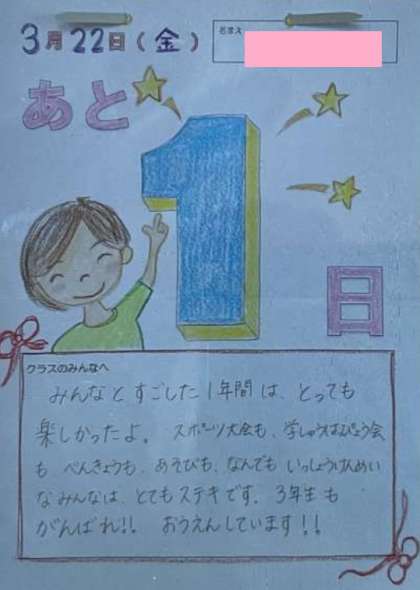 3月22日(金)
なまえ
あと
1
日
クラスのみんなへ
みんなとすごした1年間は、とっても
楽しかったよ。スポーツ大会も、学しゅうはっぴょう会
も べんきょうも、あそびも、なんでも いっしょうけんめい
なみんなは、とてもステキです。3年生も
がんばれ!! おうえんしています!!